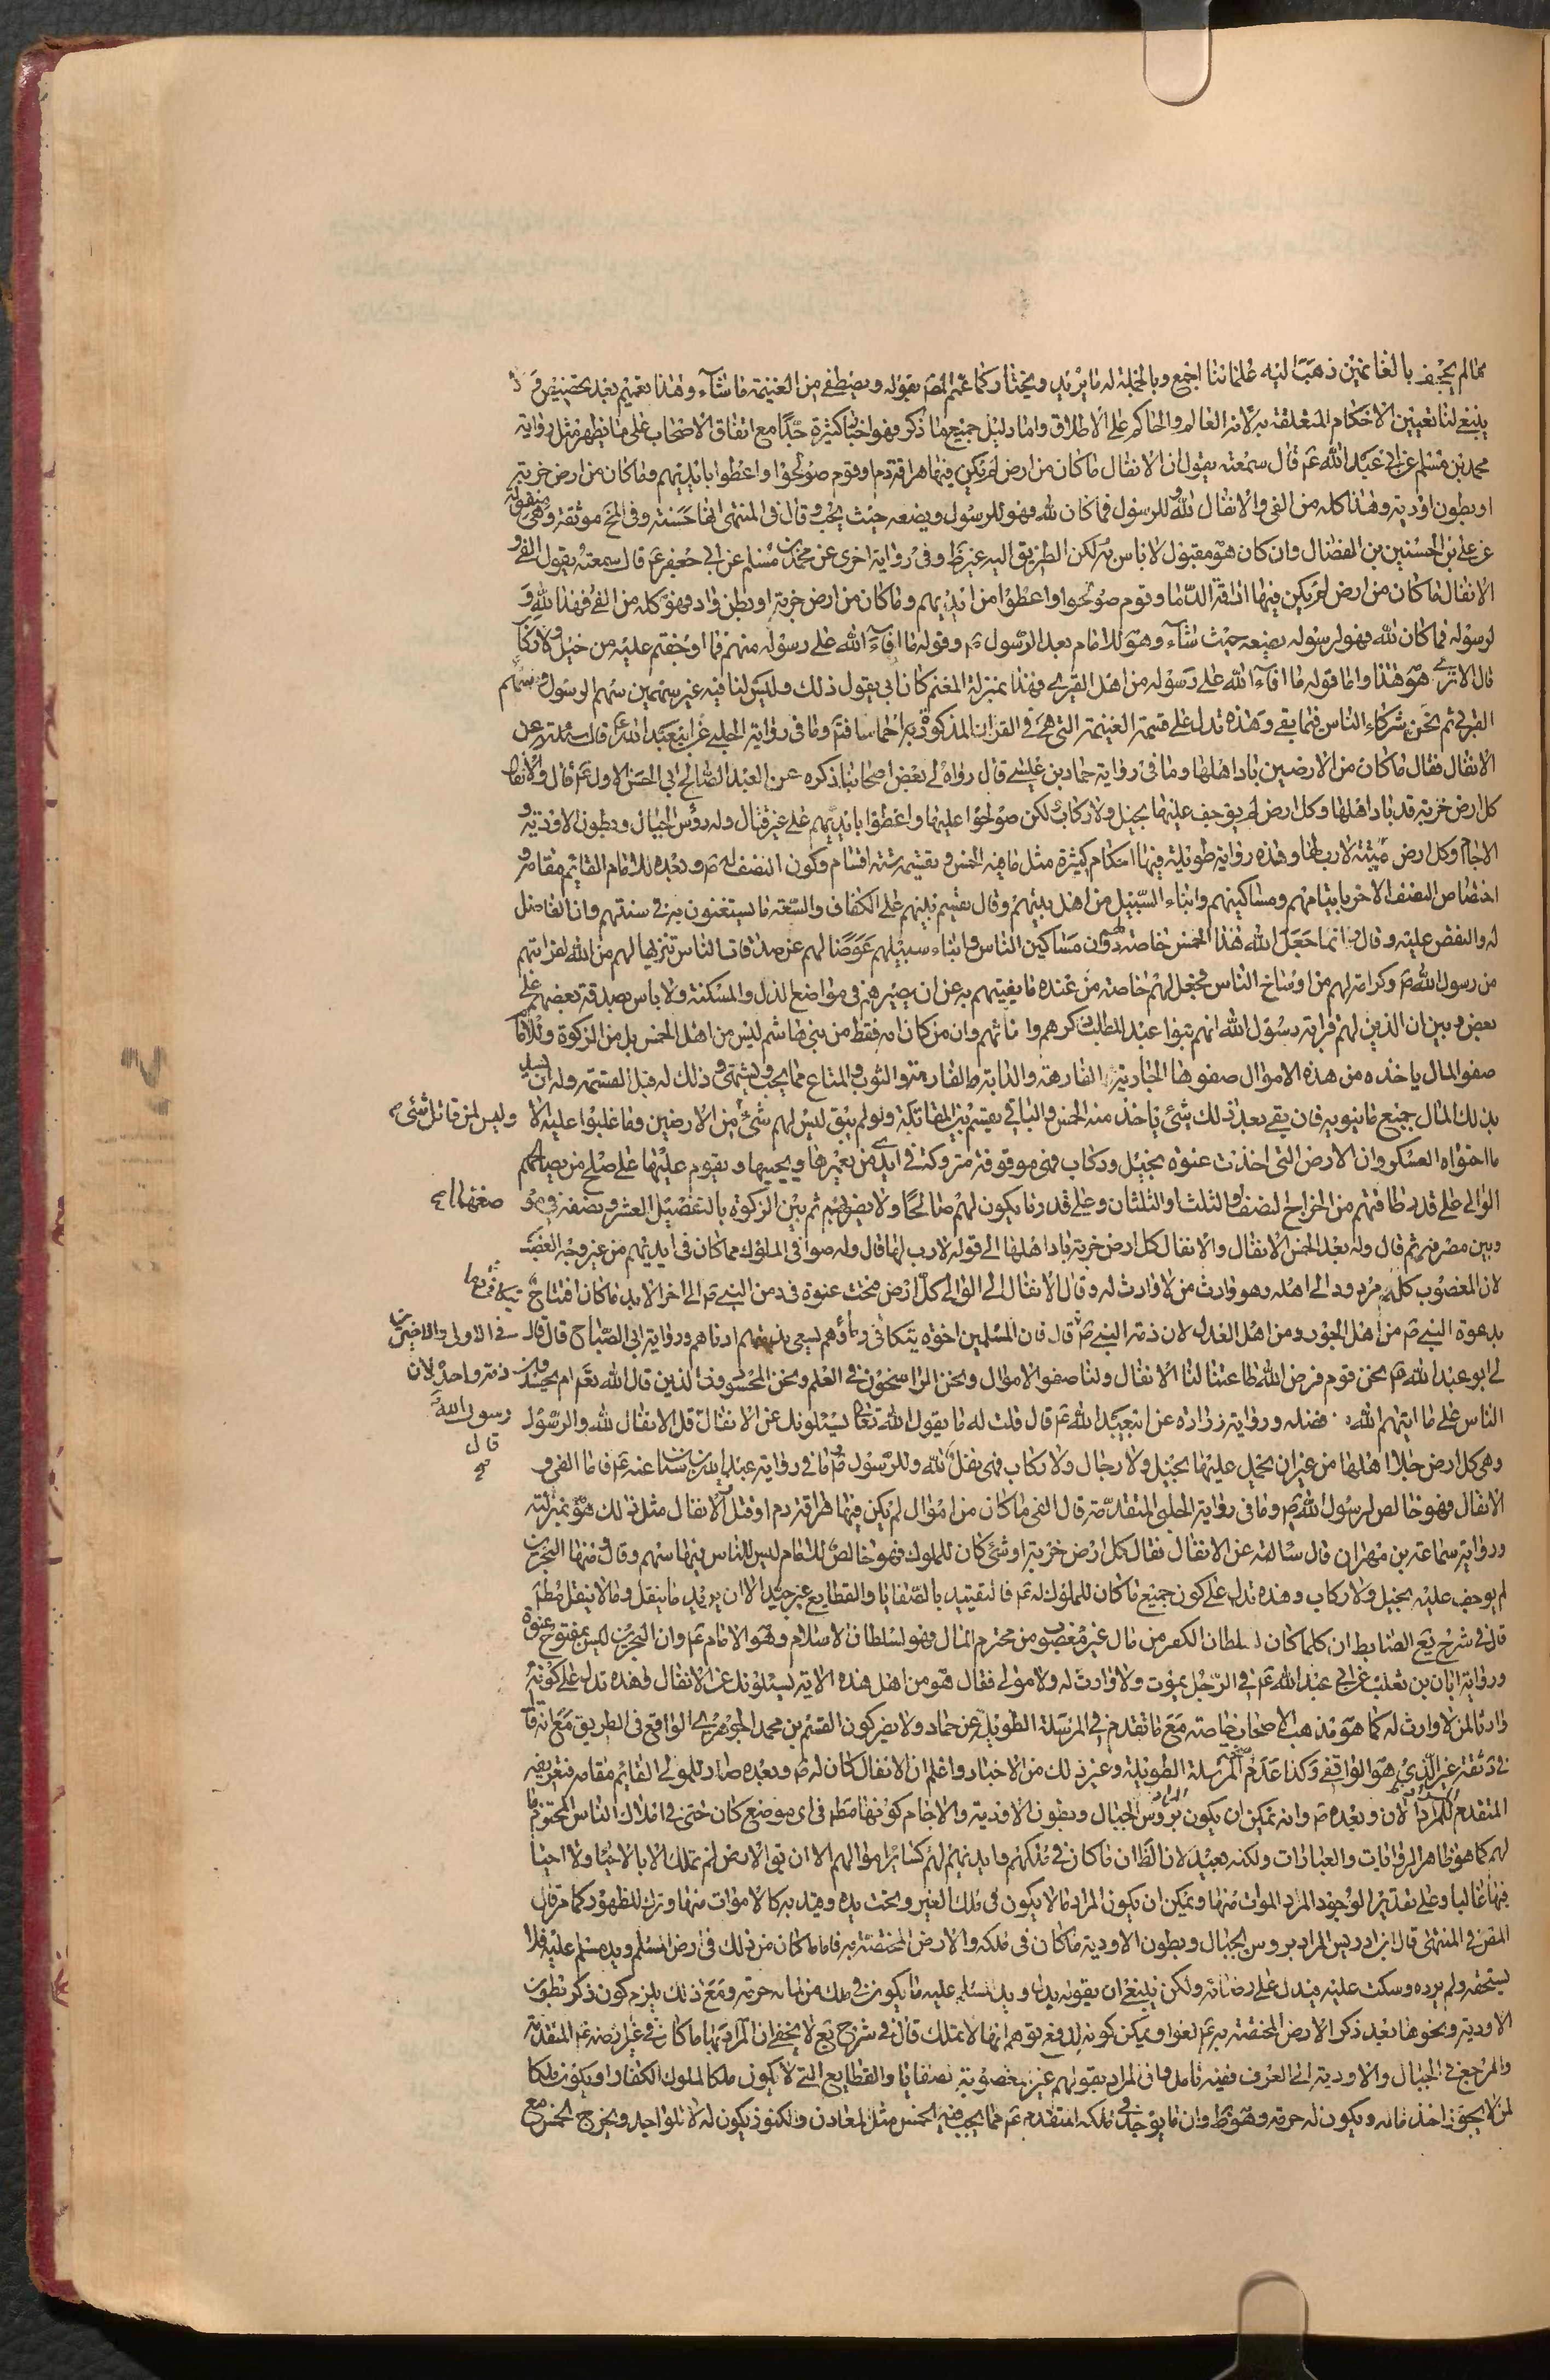 مالم يجحف بالغانمين ذهب اليه علمائنا اجمع وبالجملة له ما يريد ويختار كما عمم المص بقوله ويصطفى من الغنيمة ما شاء وهذا تعميم بعد تخصيص
ينبغى لنا تعيين الاحكام المتعلقة به لانه العالم والحاكم على الاطلاق واما دليل جميع ما ذكر فهو اخبار كثيرة جدّا مع اتفاق الاصحاب على ما يظهر مثل رواية
محمد بن مسلم عن ابى عبد الله ع قال سمعته يقول ان الانفال ما كان من ارض لم يكن فيها هراقة دم او قوم صولحوا واعطوا بايديهم وما كان من ارض خربة
او بطون اودية وهذا كله من الفئ والانفال لله وللرسول فما كان لله فهو للرسول ويضعه حيث يحب وقال فى المنتهى انها حسنة وفى المخ موثقة وهى منقولة
عن على بن الحسين بن الفضال وان كان هو مقبول لا باس به لكن الطريق اليه غير ظ وفى رواية اخرى عن محمد بن مسلم عن ابى جعفر ع قال سمعته يقول الفئ و
الانفال ما كان من ارض لم يكن فيها اراقة الدّما وقوم صولحوا واعطوا من ايديهم وما كان من ارض خربة او بطن واد فهو كله من الفئ فهذا لله و
لرسوله فما كان لله فهو لرسوله يضعه حيث شاء وهو للامام بعد الرسول ص وقوله ما افاء الله على رسوله منهم فما اوجفتم عليه من خيل ولا ركاب
قال الا ترى هو هذا واما قوله ما افاء الله على رسوله من اهل القرى فهذا بمنزلة المغنم كان ابى يقول ذلك وليس لنا فيه غير سهمين سهم الرسول وسهم
القربى ثم نحن شركاء الناس فيما بقى وهذه تدل على قسمة الغنيمة التى هى فى القران المذكورة اخماسا فتم وما فى رواية الحلبى عن ابى عبد الله ع قال سئلته عن
الانفال فقال ما كان من الارضين باد اهلها وما فى رواية حماد بن عيسى قال رواه لى بعض اصحابنا ذكره عن العبد الصالح ابى الحسن الاول ع قال والانفال
كل ارض خربة قد باد اهلها وكل ارض لم يوجف عليها بخيل ولا ركاب لكن صولحوا عليها واعطوا بايديهم على غير قتال وله رؤس الجبال وبطون الاودية و
الاجام وكل ارض ميتة لا رب لها وهذه رواية طويلة فيها احكام كثيرة مثل ما فيه الخمس وتقسيمه ستة اقسام وكون النصف له ص وبعده للامام القائم مقامه و
اختصاص النصف الاخر بايتامهم ومساكينهم وابناء السبيل من اهل بيتهم وقال يقسم بينهم على الكفاف والسعة ما يستغنون به فى سنتهم وان الفاضل
له والنقص عليه وقال انما جعل الله هذا الخمس خاصة لهم دون مساكين الناس وابناء سبيلهم عوضا لهم عن صدقات الناس تنزيها لهم من الله لقرابتهم
من رسول الله ص وكرامة لهم من اوساخ الناس فجعل لهم خاصة من عنده ما يغنيهم به عن ان يصيرهم فى مواضع الذل والمسكنة ولا باس بصدقة بعضهم على
بعض وبين ان الذين لهم قرابة رسول الله انهم بنوا عبد المطلب ذكرهم واناثهم وان من كان امه فقط من بنى هاشم ليس من اهل الخمس بل من الزكوة وللامام
صفو المال ياخذه من هذه الاموال صفوها الجارية الفارهة والدابة الفارهة والثوب والمتاع مما يحب ويشتهى وذلك له قبل القسمة وله ان يسد
بذلك المال جميع ما ينوبه فان بقى بعد ذلك شئ ياخذ منه الخمس والباقى يقسم بين المقاتلة ولو لم يبق ليس لهم شئ من الارضين وما غلبوا عليه الا
وليس لمن قاتل شئ
ما احتواه العسكر وان الارض التى اخذت عنوة بخيل وركاب فهى موقوفة متروكة فى ايدى من يعمرها ويحييها ويقوم عليها على صلح من يصالحهم
الوالى على قدر طاقتهم من الخراج النصف او الثلث او الثلثان وعلى قدر ما يكون لهم صالحا ولا يضرهم ثم بين الزكوة بالتفصيل العشر ونصفه
وبين مصرفه ثم قال وله بعد الخمس الانفال والانفال كل ارض خربة باد اهلها الى قوله لا رب لها قال وله صوافى الملوك مما كان فى ايديهم من غير وجه الغصب
لان المغصوب كله مردود الى اهله وهو وارث من لا وارث له وقال الانفال الى الوالى كل ارض فتحت عنوة فى زمن النبى ص الى اخر الابد ما كان افتتاح
بدعوة النبى ص من اهل الجور ومن اهل العدل لان ذمة النبى ص قال فان المسلمين اخوة يتكافى دمائهم يسعى بذمتهم ادناهم ورواية ابى الصباح قال قال
فى الاولين والاخرين
لى ابو عبد الله ع نحن قوم فرض الله طاعتنا لنا الانفال ولنا صفو الاموال ونحن الراسخون فى العلم ونحن المحسودون الذين قال الله تع ام يحسدون
ذمة واحدة لان
الناس على ما اتيهم الله من فضله ورواية زرارة عن ابى عبد الله ع قال قلت له ما يقول الله تعالى يسئلونك عن الانفال قل الانفال لله والرسول
رسول الله
قال
وهى كل ارض جلا اهلها من غير ان يحمل عليها بخيل ولا رجال ولا ركاب فهى نفل لله وللرسول وما فى رواية عبد الله بن سنان عنه ع فاما الفئ و
الانفال فهو خالص لرسول الله ص وما فى رواية الحلبى المتقدمة قال الفئ ما كان من اموال لم يكن فيها هراقة دم او قتل والانفال مثل ذلك هو بمنزلته
ورواية سماعة بن مهران قال سالته عن الانفال فقال كل ارض خربة او شئ كان للملوك فهو خالص للامام ليس للناس فيها سهم وقال ومنها البحرين
لم يوجف عليه بخيل ولا ركاب وهذه تدل على كون جميع ما كان للملوك له ع فالتقييد بالصفايا والقطايع غير جيد الا ان يريد ما ينقل وما لا ينقل مطلقا
قال فى شرح يع الضابط ان كلما كان لسلطان الكفر من مال غير مغصوب من محترم المال فهو لسلطان الاسلام وهو الامام ع وان البحرين ليس بمفتوح عنوة
ورواية ابان بن تغلب عن ابى عبد الله ع فى الرجل يموت ولا وارث له ولا مولى فقال هو من اهل هذه الاية يسئلونك عن الانفال وهذه تدل على كونه
وارثا لمن لا وارث له كما هو مذهب الاصحاب خاصة مع ما تقدم فى المرسلة الطويلة عن حماد ولا يضر كون القسم بن محمد الجوهرى الواقع فى الطريق مع انه قال
فى ثقة غير الذى هو الواقفى وكذا عدم صحة المرسلة الطويلة وغير ذلك من الاخبار واعلم ان الانفال كان له ص وبعده صار للمولى القائم مقامه فتعريفه
المتقدم المراد الان وبعده ص وانه يمكن ان يكون المراد برؤس الجبال وبطون الاودية والاجام كونها مط فى اى موضع كان حتى فى املاك الناس المختوم
لهم كما هو ظاهر الروايات والعبارات ولكنه بعيد لان الظ ان ما كان فى ملكهم وايديهم لهم كسائر اموالهم الا ان يق الارض لم تملك الا بالاحيا ولا احيا
فيها غالبا وعلى تقدير الوجود المراد الموات منها ويمكن ان يكون المراد ما لا يكون فى ملك الغير وتحت يده وقيد به كالاموات منها وترك للظهور كما مر قال
المص فى المنتهى قال ابن ادريس المراد بروس الجبال وبطون الاودية ما كان فى ملكه والارض المختصة به فاما ما كان من ذلك فى ارض المسلم ويد مسلم عليه فلا
يستحقه ولم يرده وسكت عليه فيدل على رضائه ولكن ينبغى ان يقول بدل ويد مسلم عليه ما يكون فى ملك من لماله حرمة ومع ذلك يلزم كون ذكر بطون
الاودية ونحوها بعد ذكر الارض المختصة به ع لغوا ويمكن كونه لدفع توهم انها لا تملك قال فى شرح يع لا يخفى ان المراد بها ما كان فى غير ارضه ع المتقدمة
والمرجع فى الجبال والاودية الى العرف ففيه تامل وان المراد بقولهم غير مغصوبة بصفايا والقطايع التى لا يكون ملكا لملوك الكفار او يكون ملكا
لمن لا يجوز اخذ ماله ويكون له حرمة وهو ظ وان ما يوجد فى ملكه المتقدم ع مما يجب فيه الخمس مثل المعادن والكنوز يكون له لا للواجد ويخرج الخمس مع